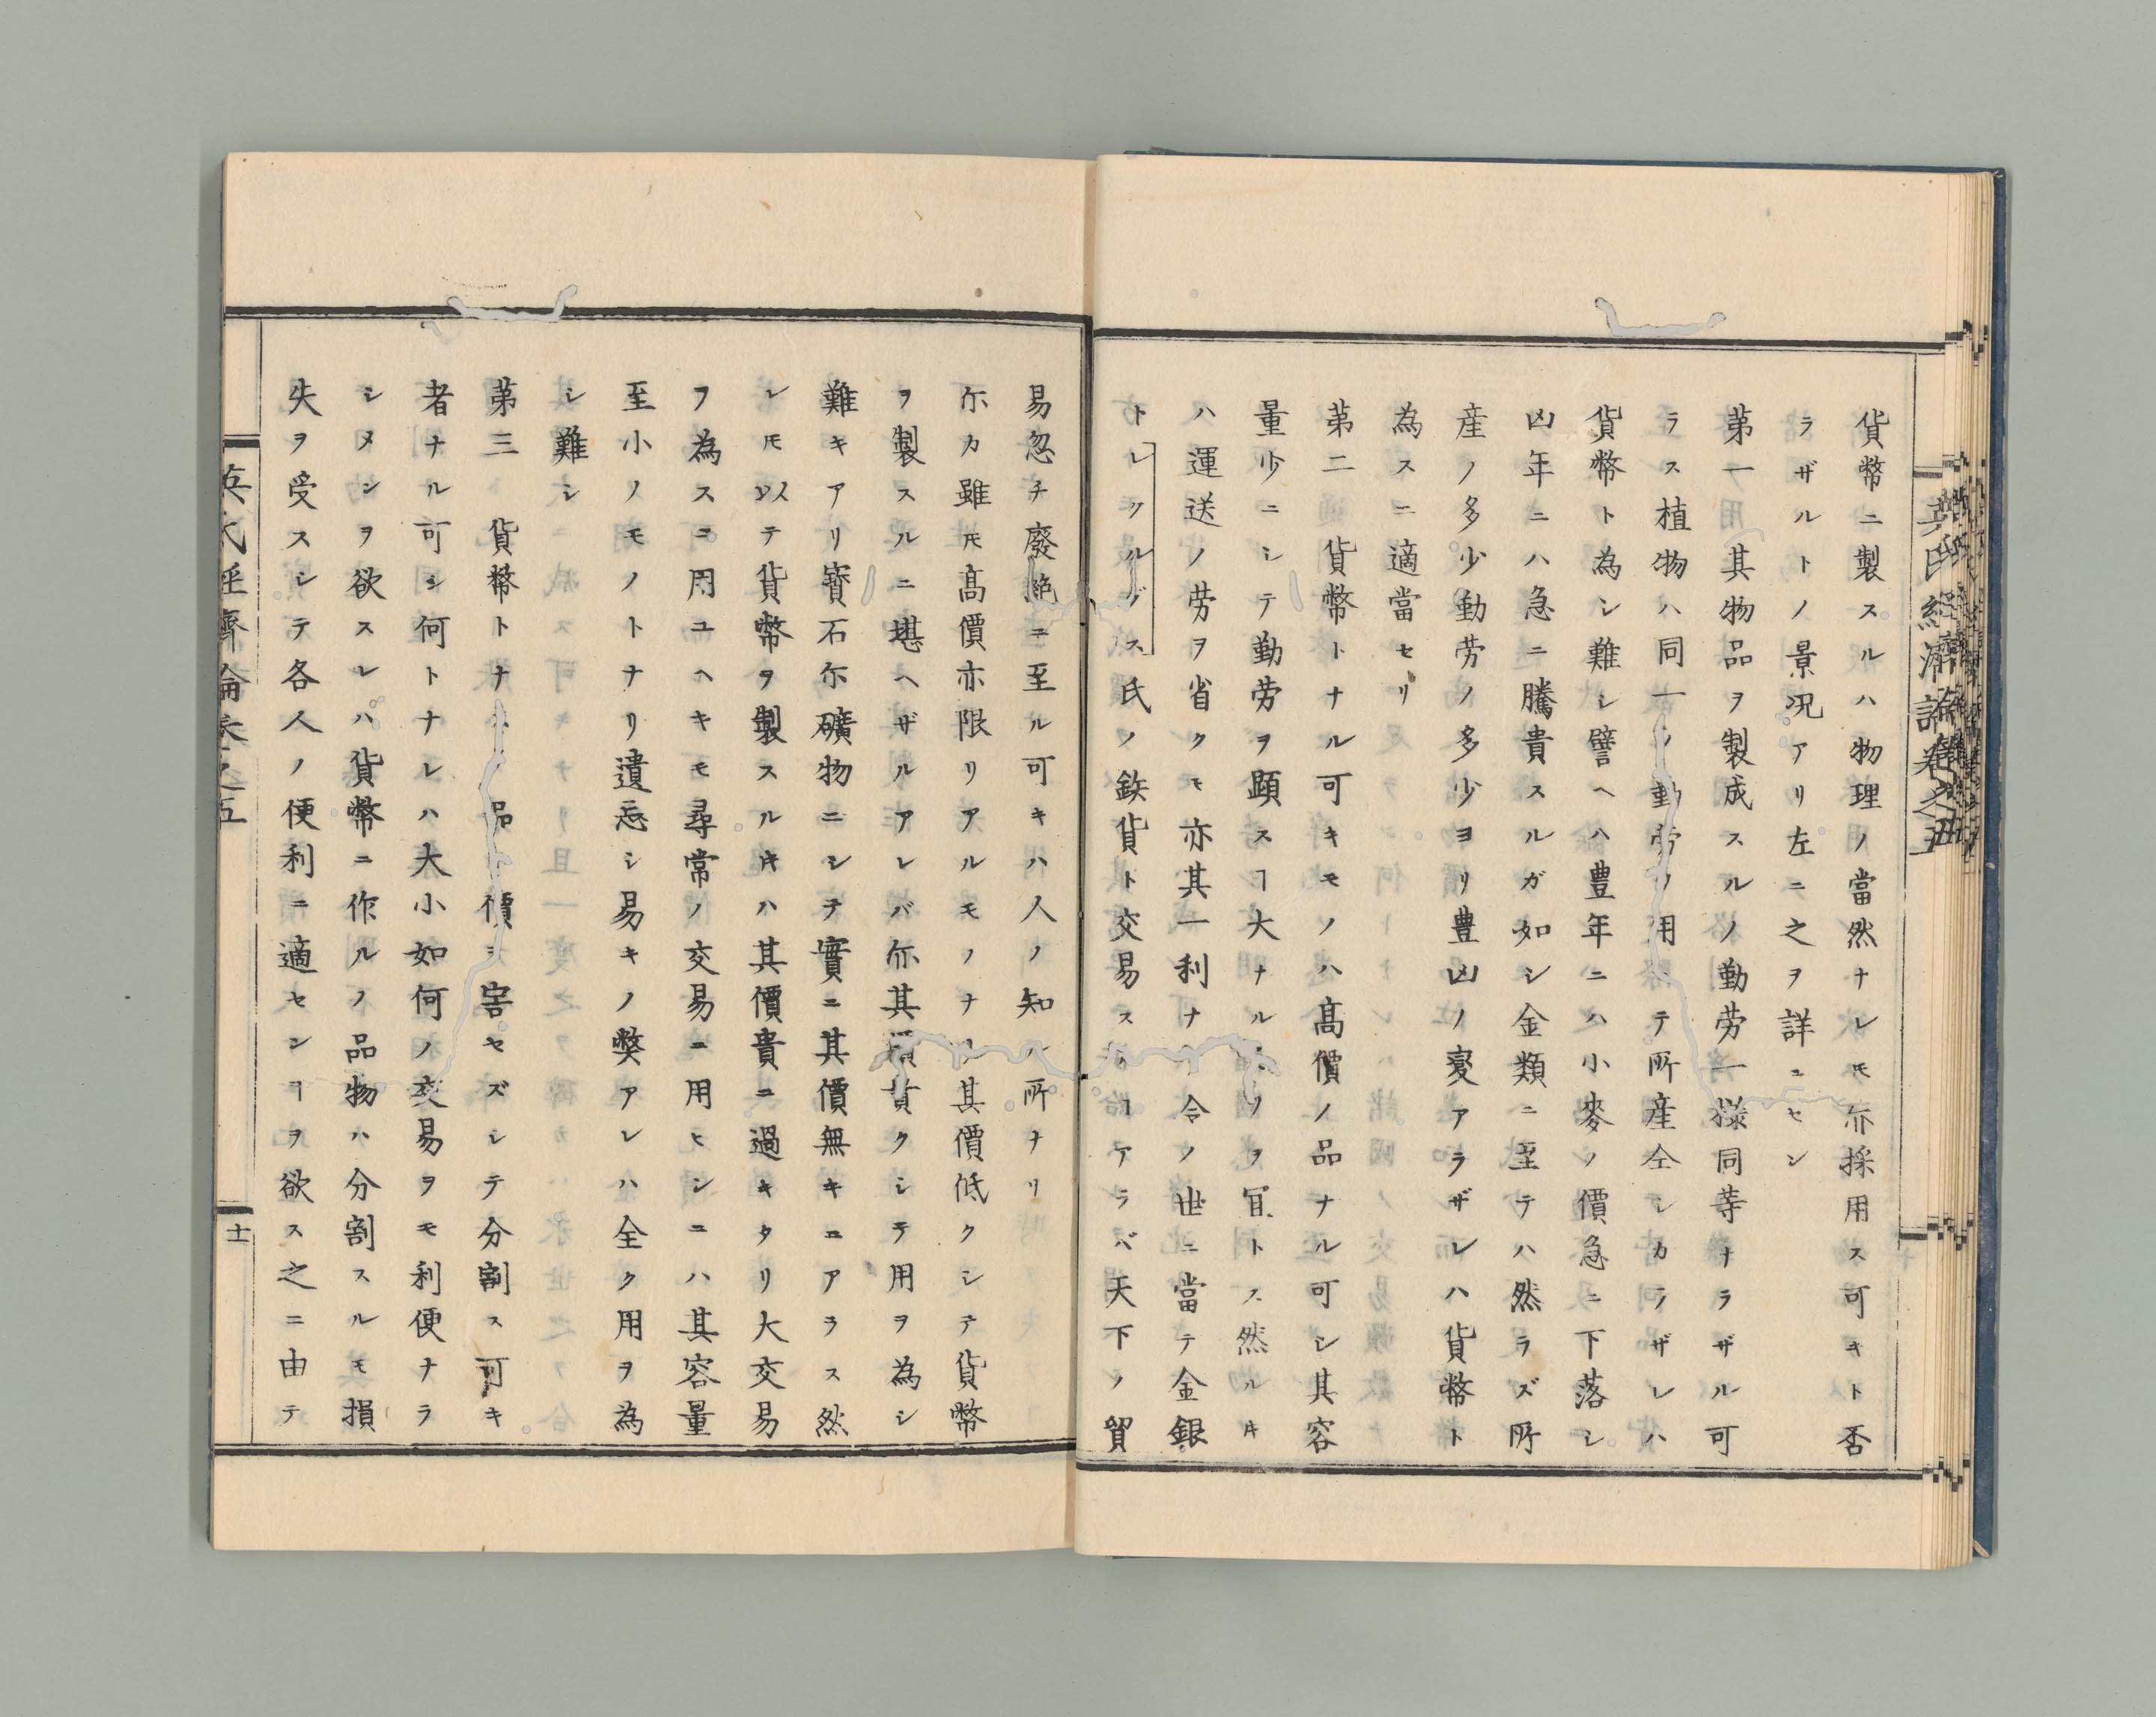 貨幣ニ製スルハ物理ノ當然ナレ𪜈亦採用ス可キト否
ラザルトノ景况アリ左ニ之ヲ詳ニセン
第一其物品ヲ製成スルノ勤労一様同等ナラザル可
ラス植物ハ同一ノ動労ノ用テ所産仝シカラザレハ
貨幣ト為シ難シ譬ヘハ豊年ニハ小麥ノ價急ニ下落シ
凶年ニハ急ニ騰貴スルガ如シ金類ニ至テハ然ラズ所
産ノ多少動労ノ多少ヨリ豊凶ノ変アラザレハ貨幣ト
為スニ適當セリ
第二貨幣トナル可キモノハ髙價ノ品ナル可シ其容
量少ニシテ勤労ヲ顕スヿ大ナルヲ冝トス然ルキ
ハ運送ノ労ヲ省クモ亦其一利ナリ今ノ世ニ當テ金銀
トレクルグス氏ノ鉄貨ト交易スルヿアラバ天下ノ貿
易忽チ廢絶ニ至ル可キハ人ノ知ル所ナリ
尓カ雖𪜈髙價亦限リアルモノナリ其價低クシテ貨幣
ヲ製スルニ堪ヘザルアレバ尓其價貴クシテ用ヲ為シ
難キアリ寳石尓礦物ニシテ實ニ其價無キニアラス然
レ𪜈以テ貨幣ヲ製スルキハ其價貴ニ過キタリ大交易
ヲ為スニ用ユヘキモ尋常ノ交易ニ用ヒンニハ其容量
至小ノモノトナリ遺忘シ易キノ獘アレハ全ク用ヲ為
シ難シ
第三 貨幣トナル品ハ價ヲ害セズシテ分割ス可キ
者ナル可シ何トナレハ大小如何ノ交易ヲモ利便ナラ
シメンヲ欲スレハ貨幣ニ作ルノ品物ハ分割スルモ損
失ヲ受スシテ各人ノ便利ニ適センヿヲ欲ス之ニ由テ
英氏経濟論卷之五
十